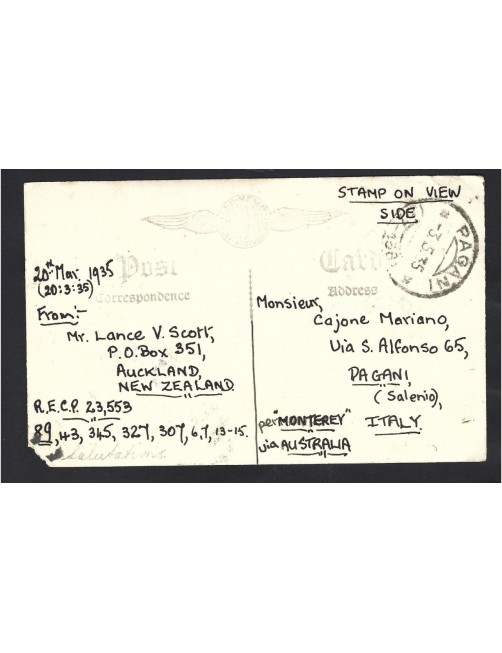 STAMP ON VIEW
SIDE
PAGANI
-3.5.35
Post
Card
Correspondence
Address
20th Mar. 1935
(20:3:35)
From:-
Mr. Lance V. Scott,
P.O. Box 351,
AUCKLAND,
NEW ZEALAND
R.E.C.P. 23,553
89, 43, 345, 327, 307, 67, 13-15.
Salutations
Monsieur,
Cajone Mariano,
Via S. Alfonso 65,
PAGANI,
(Salerio),
ITALY
per "MONTEREY"
via AUSTRALIA